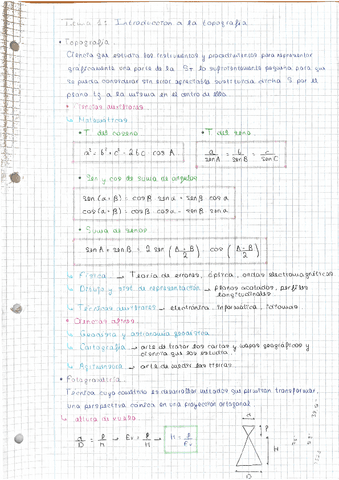 Tema 6: Introducción a la topografía
• Topografía
Ciencia que estudia los instrumentos y procedimientos para representar
gráficamente una parte de la ST lo suficientemente pequeña para que
se pueda considerar sin error apreciable sustituida dicha S por el
plano tg a la misma en el centro de ella.
• Ciencias auxiliares
↳ Matemáticas
• T. del coseno • T. del seno
a² = b² + c² - 2bc cos A a/sen A = b/sen B = c/sen C
• Sen y cos de suma de ángulos
sen (a+B) = cos B sen a + sen B cos a
cos (a+B) = cos B cos a - sen B sen a
• Suma de senos
sen A + sen B = 2 sen (A+B/2) cos (A-B/2)
↳ Física → Teoría de errores, óptica, ondas electromagnéticas
↳ Dibujo y sist. de representación → planos acotados, perfiles
longitudinales
↳ Técnicas auxiliares → electrónica, informática,
• Ciencias afines
↳ Geodesia y astronomía geodésica
↳ Cartografía → arte de trazar las cartas y mapas geográficos y
ciencia que los estudia
↳ Agrimensura → arte de medir las tierras
• Fotogrametría
Técnica cuyo objetivo es desarrollar métodos que permitan transformar
una perspectiva cónica en una proyección ortogonal
↳ altura de vuelo
d/D = f/H → Er = f/H → H = f/Er
d
f
H
D